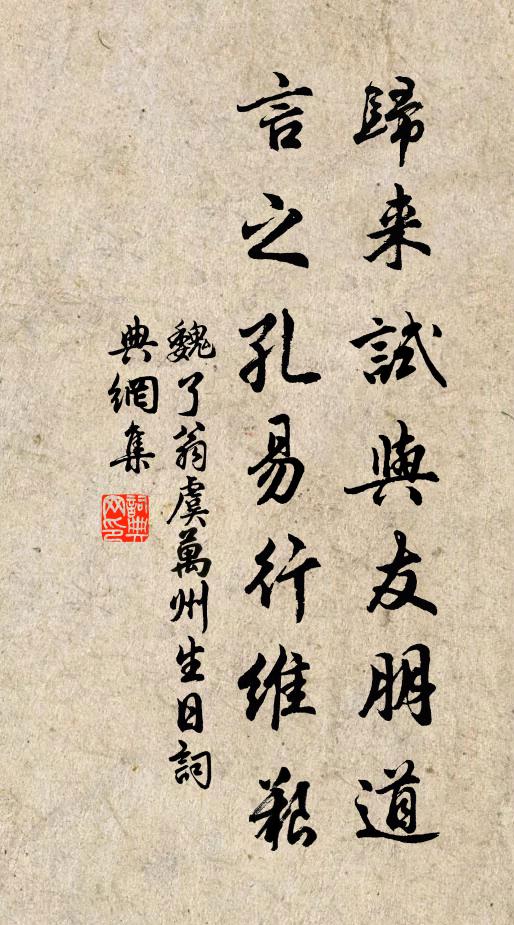 歸来試與友朋道
言之孔易行維艱
魏了翁虞萬州生日詞
典網集
詞典網印